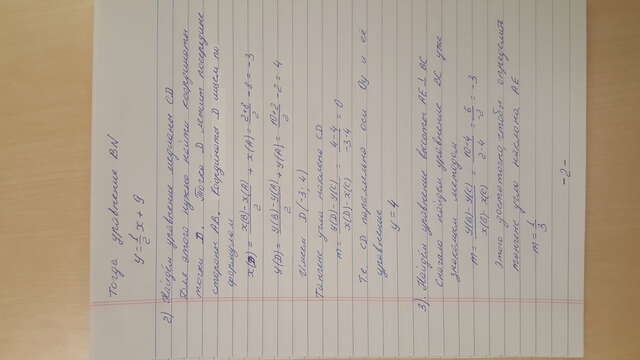 Тогда уравнение BN
y = 1/2 x + 9
2) Найдём уравнение медианы CD
Для этого нужно найти координаты
точки D. Точка D лежит посередине
стороны AB. Координаты D ищем по
формулам
x(D) = (x(B)-x(A))/2 + x(A) = (2+8)/2 - 8 = -3
y(D) = (y(B)-y(A))/2 + y(A) = (10+2)/2 - 2 = 4
Имеем D(-3; 4)
Тангенс угла наклона CD
m = (y(D)-y(C))/(x(D)-x(C)) = (4-4)/(-3-4) = 0
Т.е. CD параллельна оси Oy и её
уравнение
y = 4
3) Найдём уравнение высоты AE ⊥ BC
Сначала найдем уравнение BC уже
знакомым методом
m = (y(B)-y(C))/(x(B)-x(C)) = (10-4)/(2-4) = 6/-2 = -3
Этого достаточно, чтобы определить
тангенс угла наклона AE
m = 1/3
-2-